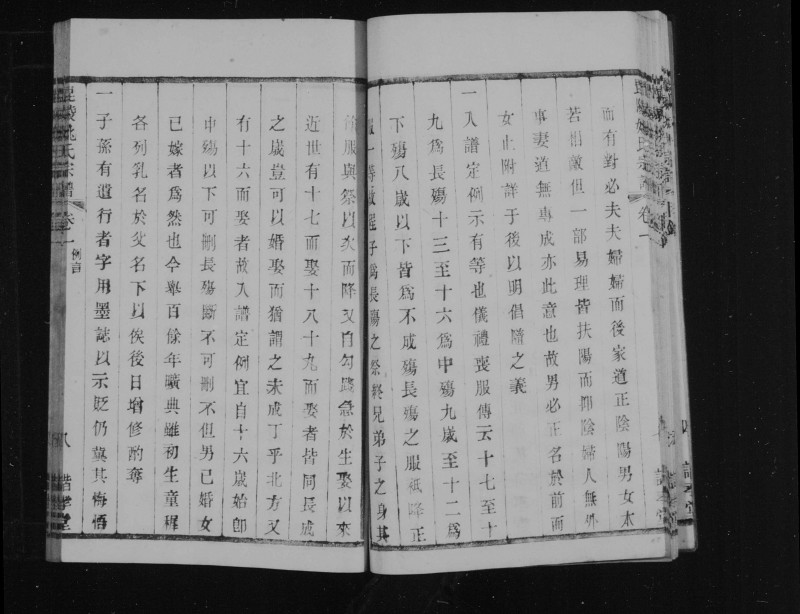 而有對必夫夫婦婦而後家道正陰陽男女本
若相敵但一部易理皆扶陽而抑陰婦人無外
事妻道無專成亦此意也故男必正名於前而
女止附詳于後以明倡隨之義
一入譜定例示有等也儀禮喪服傳云十七至十
九爲長殤十三至十六爲中殤九歲至十二爲
下殤八歲以下皆爲不成殤長殤之服祗降正
服一等故程子爲長殤之祭終兄弟子之身其
餘服與祭以次而降又自勾踐急於生聚以來
近世有十七而娶十八十九而娶者皆同長成
之歲豈可以婚娶而猶謂之未成丁乎北方又
有十六而娶者故入譜定例宜自十六歲始卽
中殤以下可刪長殤斷不可刪不但男已婚女
已嫁者爲然也今舉百餘年曠典雖初生童穉
各列乳名於父名下以俟後日增修酌奪
一子孫有遺行者字用墨誌以示貶仍冀其悔悟
毘陵姚氏宗譜 卷一 例言 八